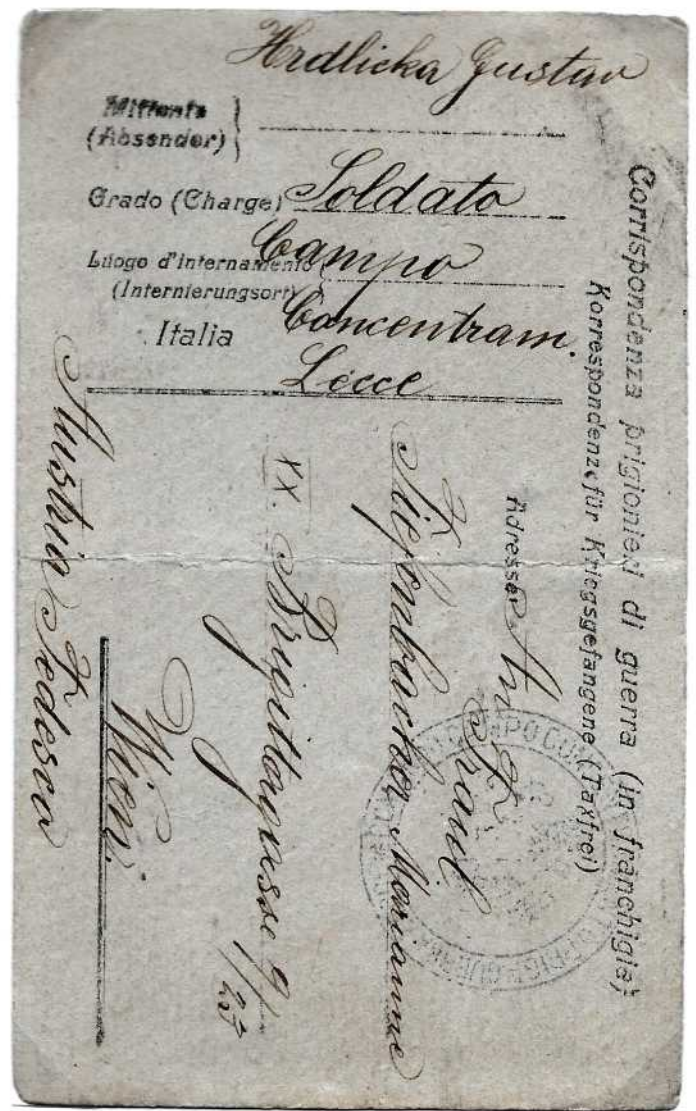 Hrdlicka Gustav
Mittente
(Absender)
Grado (Charge) Soldato
Luogo d'internamento Campo
(Internierungsort) Concentram.
Italia
Lecce
Corrispondenza prigionieri di guerra (in franchigia)
Korrespondenz für Kriegsgefangene (Taxfrei)
Adresse: An
Marianne
XX. Brigittagasse 9/
Wien.
Austria Tedesca